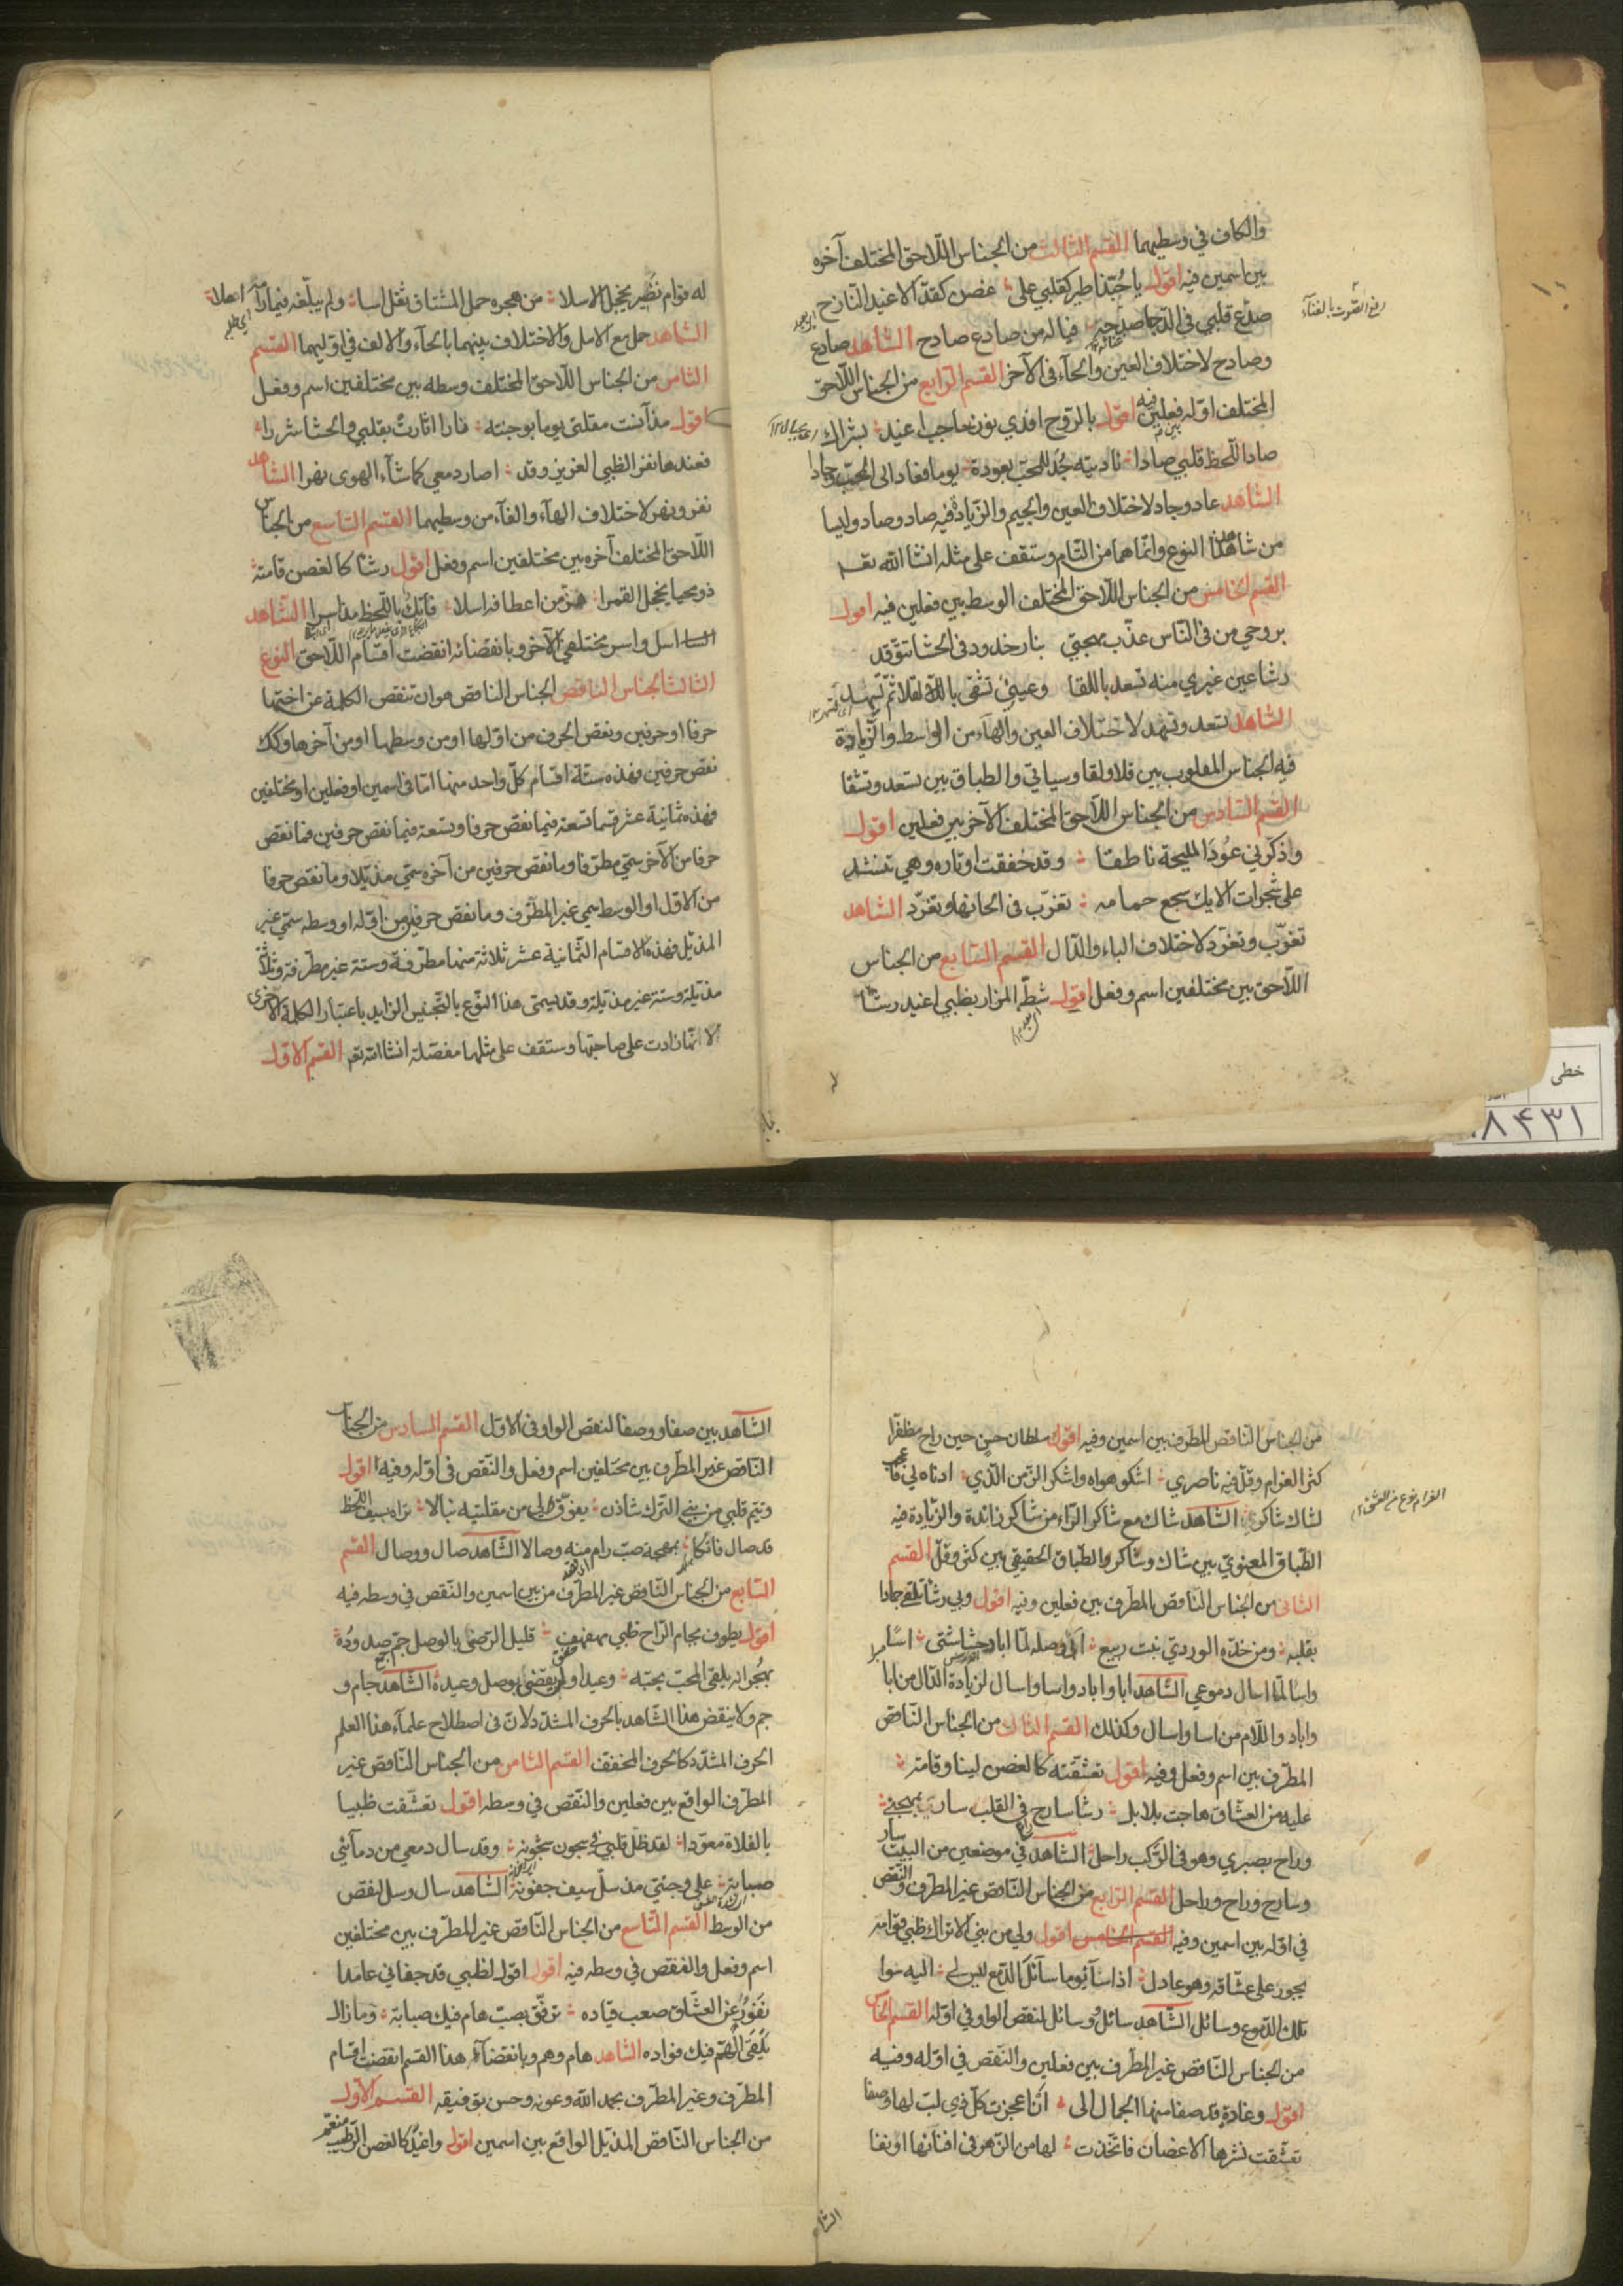 والكاف في وسطيهما القسم الثالث من الجناس اللاحق المختلف آخره
بين اسمين فيه اقول يا حبّذا طير كقلبي على غصن كقدّ الاغيد النازح
صدع قلبي في الدجا صدحه فياله من صادع صادح الشاهد صادع
وصادح لاختلاف العين والحآء في الآخر القسم الرابع من الجناس اللاحق
المختلف اوله فعلين فيه اقول بالروح افدي نون حاجب اغيد بشراك
صاد اللحظ قلبي صادا ناديته جُد للمحبّ بعودة يوما فعاد الى المحبّ وجادا
الشاهد عاد وجاد لاختلاف العين والجيم والزيادة فيه صاد وصاد وليسا
من شاهد هذا النوع وانما هما من التام وستقف على مثله انشا الله تعـ
القسم الخامس من الجناس اللاحق المختلف الوسط بين فعلين فيه اقول
بروحي من في الناس عذّب مهجتي بنار خدود في الحشا تتوقد
رشا عين غيري منه تسعد باللقا وعيني تشقى بالقلا ثم تسهد
الشاهد تسعد وتهمد لاختلاف العين والهآء من الواسط والزيادة
فيه الجناس المقلوب بين قلا ولقا وسياتي والطباق بين تسعد وتشقا
القسم السادس من الجناس اللاحق المختلف الآخر بين فعلين اقول
واذكرني عُودَ المليحة ناطقا وقد خفقت اوتاره وهي تنشد
على شجرات الايك سجع حمامه تغرّب في الحانها وتغرّد الشاهد
تغرّب وتغرّد لاختلاف الباء والدال القسم السابع من الجناس
اللاحق بين مختلفين اسم وفعل اقول شطّ المزار بظبي اغيد رشا
له قوام نضير يخجل الاسلا من هجره حمل المشتاق ثقل اسا ولم يبلّغه فيما رامه املا
الشاهد حمل مع الامل والاختلاف بينهما بالحآء والالف في اوليهما القسم
الثامن من الجناس اللاحق المختلف وسطه بين مختلفين اسم وفعل
اقول مذ آنست مقلتي يوما بوجنته نارا اثارت بقلبي والحشا شررا
فعندها نفر الظبي الغرير وقد اصار دمعي كما شآء الهوى نهرا الشاهد
نفر ونهر لاختلاف الهآء والفآء من وسطيهما القسم التاسع من الجناس
اللاحق المختلف آخره بين مختلفين اسم وفعل اقول رشا كالغصن قامته
ذو محيا يخجل القمرا هزّ من اعطافه اسلا فاتك باللحظ مذ اسرا الشاهد
اسل واسر مختلفي الآخر وبانقضائه انقضت اقسام اللاحق النوع
الثالث الجناس الناقص الجناس الناقص هو ان تنقص الكلمة عن اختها
حرفا او حرفين ونقص الحرف من اولها او من وسطها او من آخرها وكك
نقص حرفين فهذه ستة اقسام كل واحد منها اما في اسمين او فعلين او مختلفين
فهذه ثمانية عشر قسما تسعة فيما نقص حرفا وتسعة فيما نقص حرفين فما نقص
حرفا من الآخر سمّي مطرّفا وما نقص حرفين من آخره سمّي مذيّلا وما نقص حرفا
من الاول او الوسط سمي غير المطرّف وما نقص حرفين من اوله او وسطه سمّي غير
المذيل فهذه الاقسام الثمانية عشر ثلاثة منها مطرّفة وستة غير مطرّفة وثلاثة
مذيلة وستة غير مذيلة وقد يسمّى هذا النوع بالتجنيس الزايد باعتبار الكلمة الاخرى
لانّها زادت على صاحبتها وستقف على مثلها مفصّلة انشا الله تعـ القسم الاول
من الجناس الناقص المطرف بين اسمين وفيه اقول سلطان حسن حين راح مظفرا
كثر الغرام وقلّ فيه ناصري اشكو هواه واشكر الزمن الذي ادناه لي
لشاك شاكر الشاهد شاك مع شاكر الراء من شاكر زائدة والزيادة فيه
الطباق المعنوي بين شاك وشاكر والطباق الحقيقي بين كثر وقلّ القسم
الثاني من الجناس الناقص المطرف بين فعلين وفيه اقول وبي رشا
بقلبه ومن خدّه الوردي نبت ربيع ابى وصله لمّا اباد حشاشتي
واسا لمّا اسال دموعي الشاهد ابا واباد واسا واسال لزيادة الدال من ابا
واباد واللام من اسا واسال وكذلك القسم الثالث من الجناس الناقص
المطرّف بين اسم وفعل وفيه اقول تعشّقته كالغصن لينا وقامة
عليه من العشّاق هاجت بلابل رشا سارح في القلب سار بمهجتي
وراح بصبري وهو في الركب راحل الشاهد في موضعين من البيت سار
وسارح وراح وراحل القسم الرابع من الجناس الناقص غير المطرف والنقص
في اوله بين اسمين وفيه القسم الخامس اقول ولي من بني الاتراك ظبي قوامه
يجور على عشّاقه وهو عادل اذا سآ يوما سآئل الدمع ليس لي اليه سوا
تلك الدموع وسائل الشاهد سائل وسائل لنقص الواو في اوله القسم الخامس
من الجناس الناقص غير المطرف بين فعلين والنقص في اوله وفيه
اقول وغادة قد صفا منها الجمال الى ان اعجزت كلّ ذي لبّ لها وصفا
تعشّقت نشرها الاغصان فاتخذت لها من الزهر في افنانها
الشاهد بين صفا ووصفا لنقص الواو في الاول القسم السادس من الجناس
الناقص غير المطرف بين مختلفين اسم وفعل والنقص في اوله وفيه اقول
وتيّم قلبي من بني الترك شادن يفوّق لي من مقلتيه نبالا تراه بسيف اللحظ
قد صال فاتكا بمهجة صبّ رام منه وصالا الشاهد صال ووصال القسم
السابع من الجناس الناقص غير المطرّف من بين اسمين والنقص في وسطه فيه
اقول يطوف بجام الراح ظبي مهفهف قليل الرضى بالوصل جمّ صدوده
بهجرانه يلقى المحبّ بحبّه وعيدا ولم يقضى بوصل وعيده الشاهد جام و
جم ولا ينقض هذا الشاهد بالحرف المشدد لان في اصطلاح علمآء هذا العلم
الحرف المشدد كالحرف المخفف القسم الثامن من الجناس الناقص غير
المطرف الواقع بين فعلين والنقص في وسطه اقول تعشّقت ظبيا
بالفلاة معوّدا لقد ظلّ قلبي في سجون شجونه وقد سال دمعي من دمآئي
صبابة على وجنتي مذ سلّ سيف جفونه الشاهد سال وسل لنقص
من الوسط القسم التاسع من الجناس الناقص غير المطرف بين مختلفين
اسم وفعل والنقص في وسطه فيه اقول اقول لظبي قد جفاني عامدا
نَفورٌ عن العشّاق صعب قياده ترفّق بصبّ هام فيك صبابة وما زال
يلقى الهمّ فيك فواده الشاهد هام وهم وبانقضآء هذا القسم انقضت اقسام
المطرف وغير المطرّف بحمد الله وعونه وحسن توفيقه القسم الاول
من الجناس الناقص المذيل الواقع بين اسمين اقول واغيد كالغصن الرطيب منعّم
الغرام نوع من العشق
خطی
۸۴۳۱